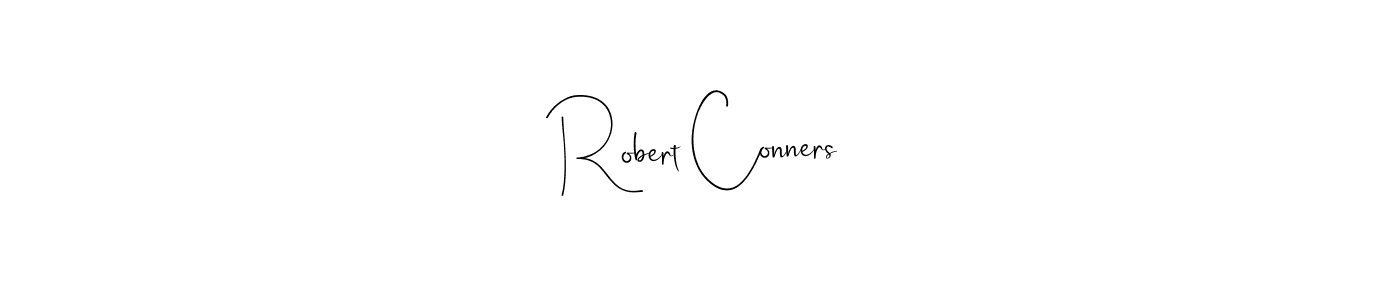 Robert Conners